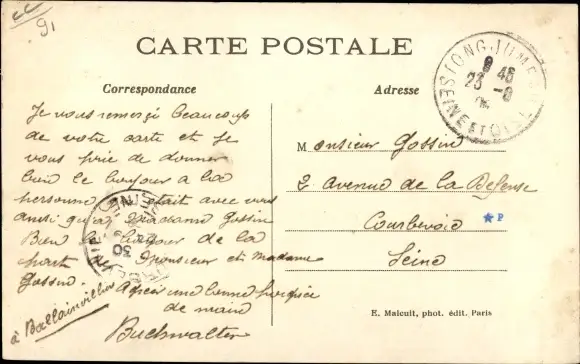 cc
91
CARTE POSTALE
Correspondance
Je vous remerci beaucoup
de votre carte et je
vous prie de donner
bien le bonjour a la
personne était avec vous
ausi qu'a Madame Gossin
Bien le bonjour de la
part Monsieur et Madame
Gossin. Agréer une bonne
de main
Buchwalter
à Ballainvilliers
Adresse
LONGJUMEAU
9 45
23 -8
SEINE ET OISE
Monsieur Gossin
2 avenue de la Défense
Courbevoie
★ P
Seine
SEINE
30
E. Malcuit, phot. édit. Paris